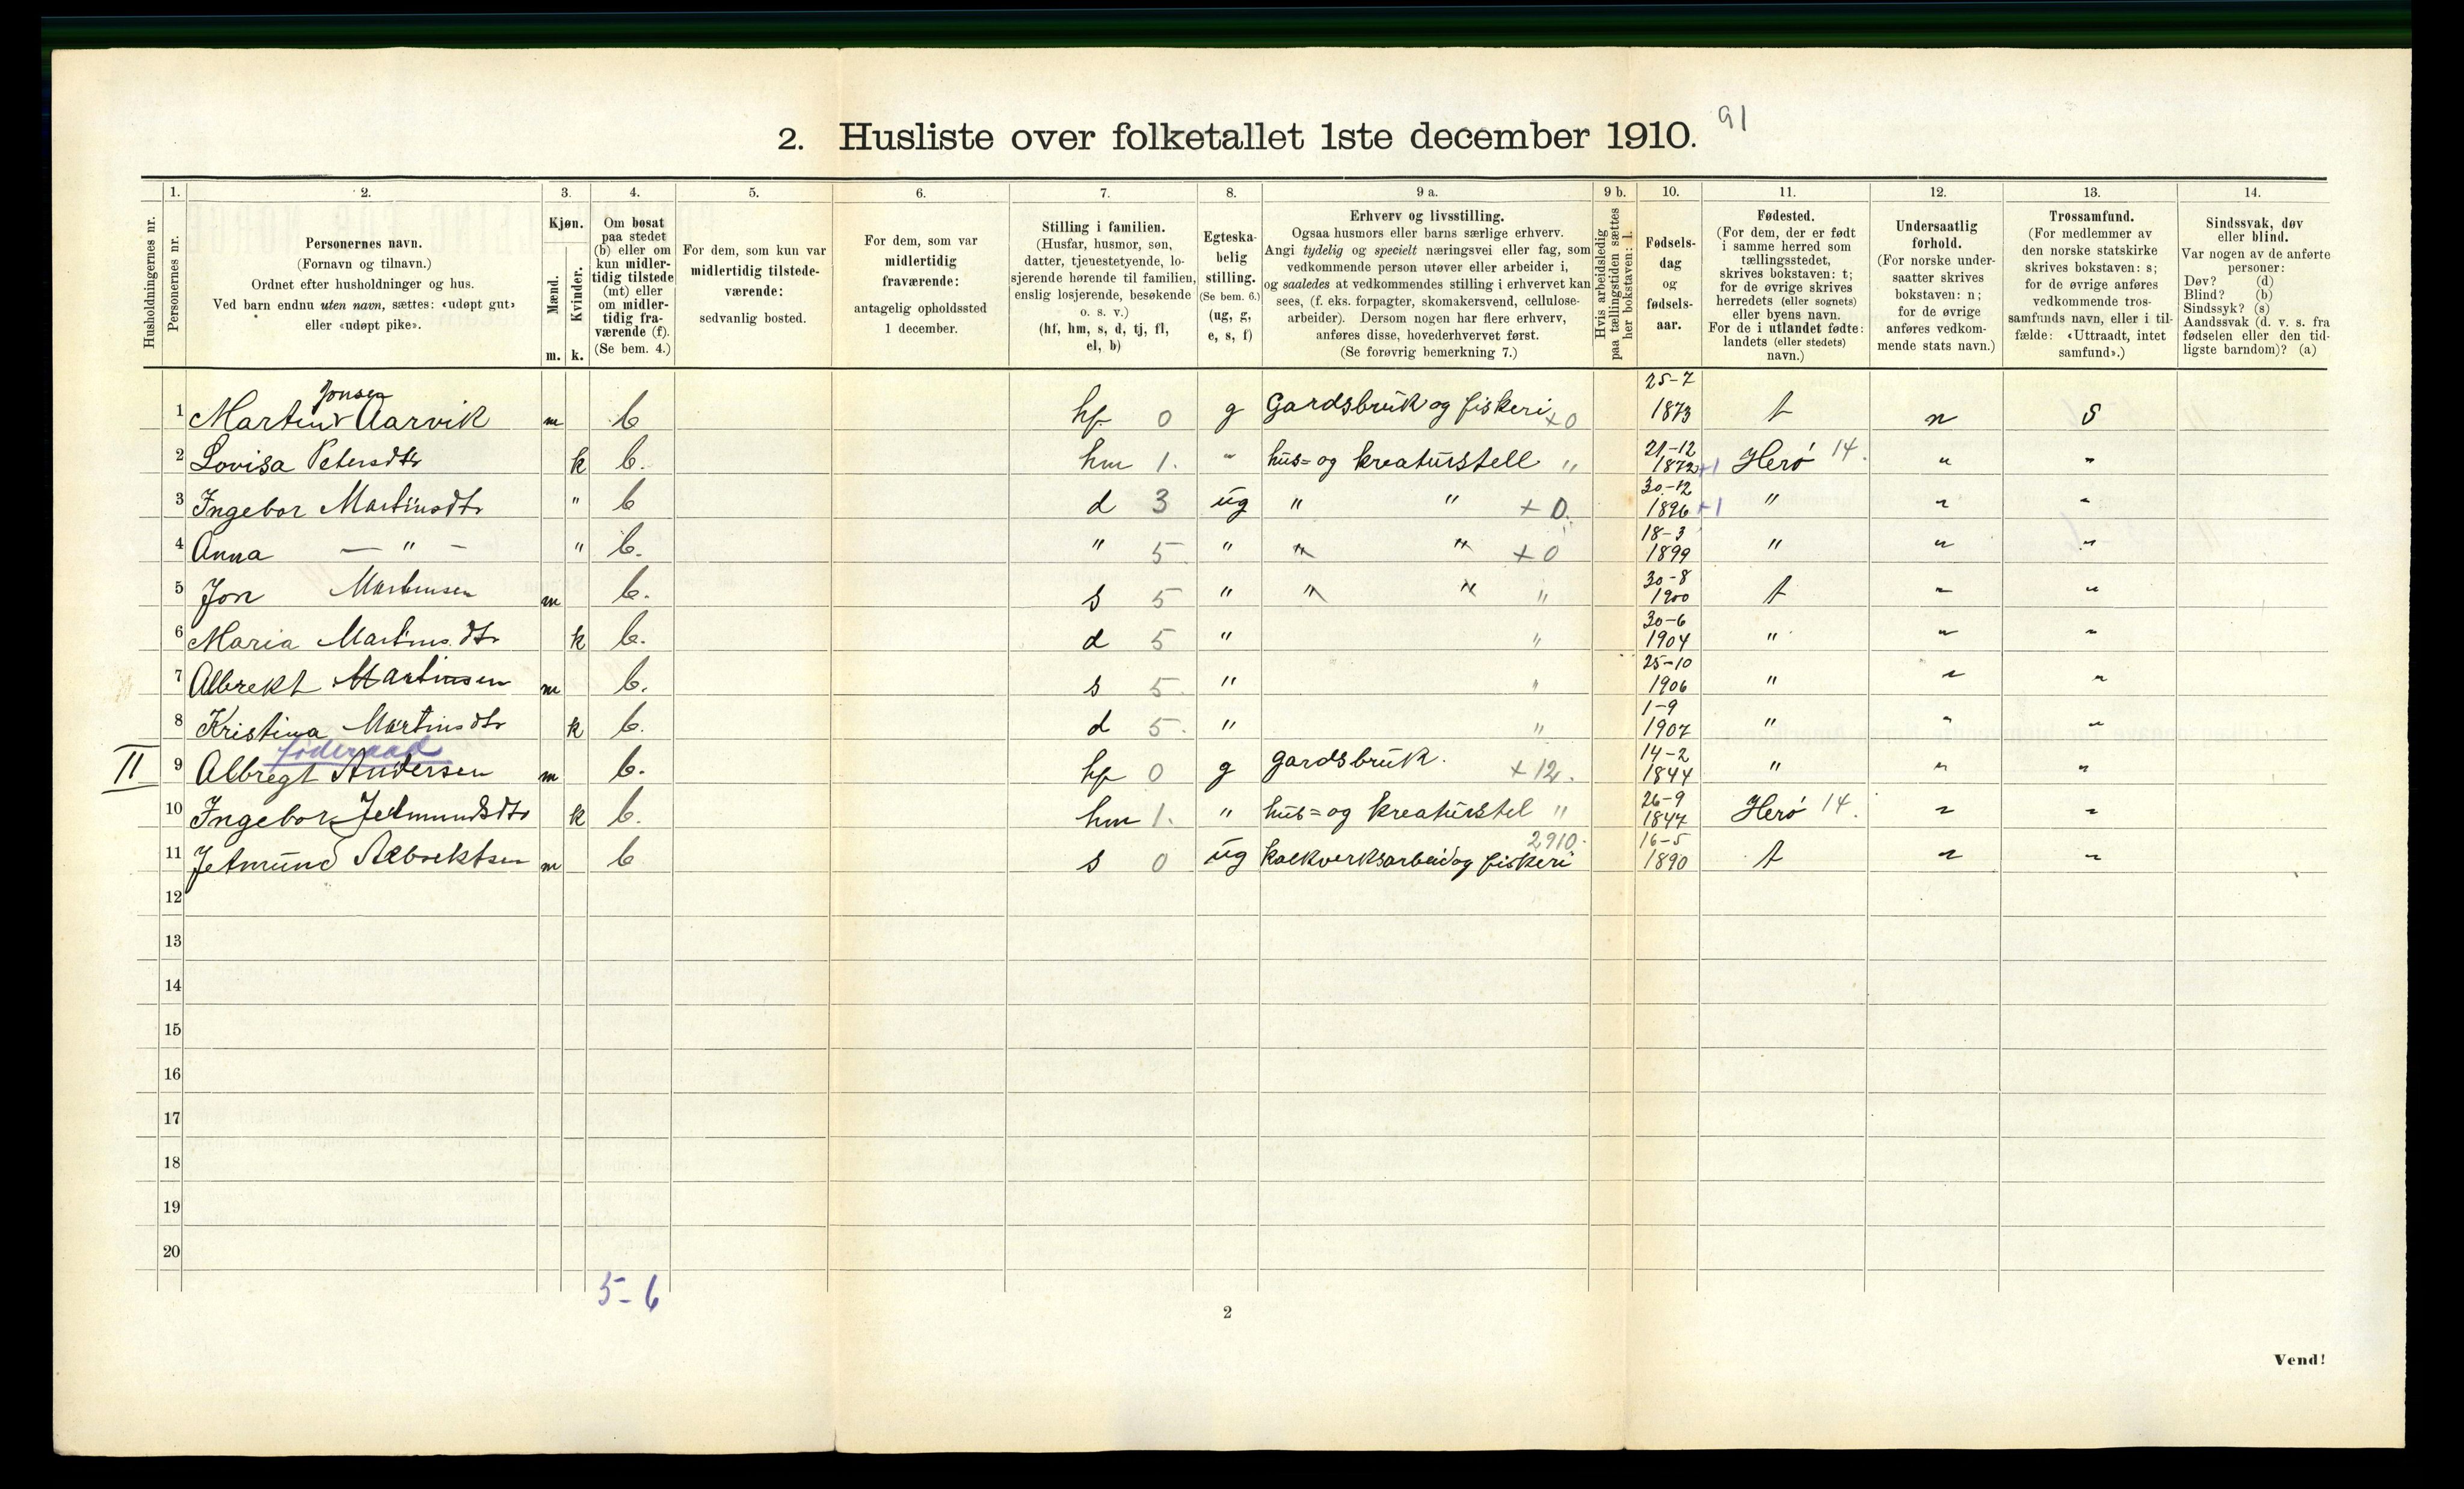 91
2. Husliste over folketallet 1ste december 1910.
Husholdningernes nr.
1.
Personernes nr.
2.
Personernes navn.
(Fornavn og tilnavn.)
Ordnet efter husholdninger og hus.
Ved barn endnu uten navn, sættes: «udøpt gut»
eller «udøpt pike».
3.
Kjøn.
Mænd.
Kvinder.
m. k.
4.
Om bosat
paa stedet
(b) eller om
kun midler-
tidig tilstede
(mt) eller
om midler-
tidig fra-
værende (f).
(Se bem. 4.)
5.
For dem, som kun var
midlertidig tilstede-
værende:
sedvanlig bosted.
6.
For dem, som var
midlertidig
fraværende:
antagelig opholdssted
1 december.
7.
Stilling i familien.
(Husfar, husmor, søn,
datter, tjenestetyende, lo-
sjerende hørende til familien,
enslig losjerende, besøkende
o. s. v.)
(hf, hm, s, d, tj, fl,
el, b)
8.
Egteska-
belig
stilling.
(Se bem. 6.)
(ug, g,
e, s, f)
9 a.
Erhverv og livsstilling.
Ogsaa husmors eller barns særlige erhverv.
Angi tydelig og specielt næringsvei eller fag, som
vedkommende person utøver eller arbeider i,
og saaledes at vedkommendes stilling i erhvervet kan
sees, (f. eks. forpagter, skomakersvend, cellulose-
arbeider). Dersom nogen har flere erhverv,
anføres disse, hovederhvervet først.
(Se forøvrig bemerkning 7.)
9 b.
Hvis arbeidsledig
paa tællingstiden sættes
her bokstaven: l.
10.
Fødsels-
dag
og
fødsels-
aar.
11.
Fødested.
(For dem, der er født
i samme herred som
tællingsstedet,
skrives bokstaven: t;
for de øvrige skrives
herredets (eller sognets)
eller byens navn.
For de i utlandet fødte:
landets (eller stedets)
navn.)
12.
Undersaatlig
forhold.
(For norske under-
saatter skrives
bokstaven: n;
for de øvrige
anføres vedkom-
mende stats navn.)
13.
Trossamfund.
(For medlemmer av
den norske statskirke
skrives bokstaven: s;
for de øvrige anføres
vedkommende tros-
samfunds navn, eller i til-
fælde: «Uttraadt, intet
samfund».)
14.
Sindssvak, døv
eller blind.
Var nogen av de anførte
personer:
Døv? (d)
Blind? (b)
Sindssyk? (s)
Aandssvak (d. v. s. fra
fødselen eller den tid-
ligste barndom)? (a)
Jonsen 25-7
1 Martin Aarvik m b hf 0 g Gardsbruk og fiskeri +0 1873 t n s
21-12
2 Lovisa Petersdtr k b. hm 1. " hus= og kreaturstell " 1872 +1 Herø 14. " "
30-12
3 Ingebor Martinsdtr " b d 3 ug " " +0. 1896 +1 " " "
18-3
4 Anna — " — " b. " 5 " " " +0 1899 " " "
30-8
5 Jon Martinsen m b. s 5 " " " " 1900 t " "
30-6
6 Maria Martinsdtr k b. d 5 " " 1904 " " "
25-10
7 Albrekt Martinsen m b. s 5 " " 1906 " " "
1-9
8 Kristina Martinsdtr k b. d 5. " " 1907 " " "
føderaad 14-2
II 9 Albregt Andersen m b. hf 0 g gardsbruk. +12. 1844 " " "
26-9
10 Ingebor Jetmundsdtr k b. hm 1. " hus= og kreaturstel " 1847 Herø 14. " "
2910. 16-5
11 Jetmund Albrektsen m b s 0 ug kalkverksarbeid og fiskeri 1890 t " "
12
13
14
15
16
17
18
19
20
5-6
2
Vend!